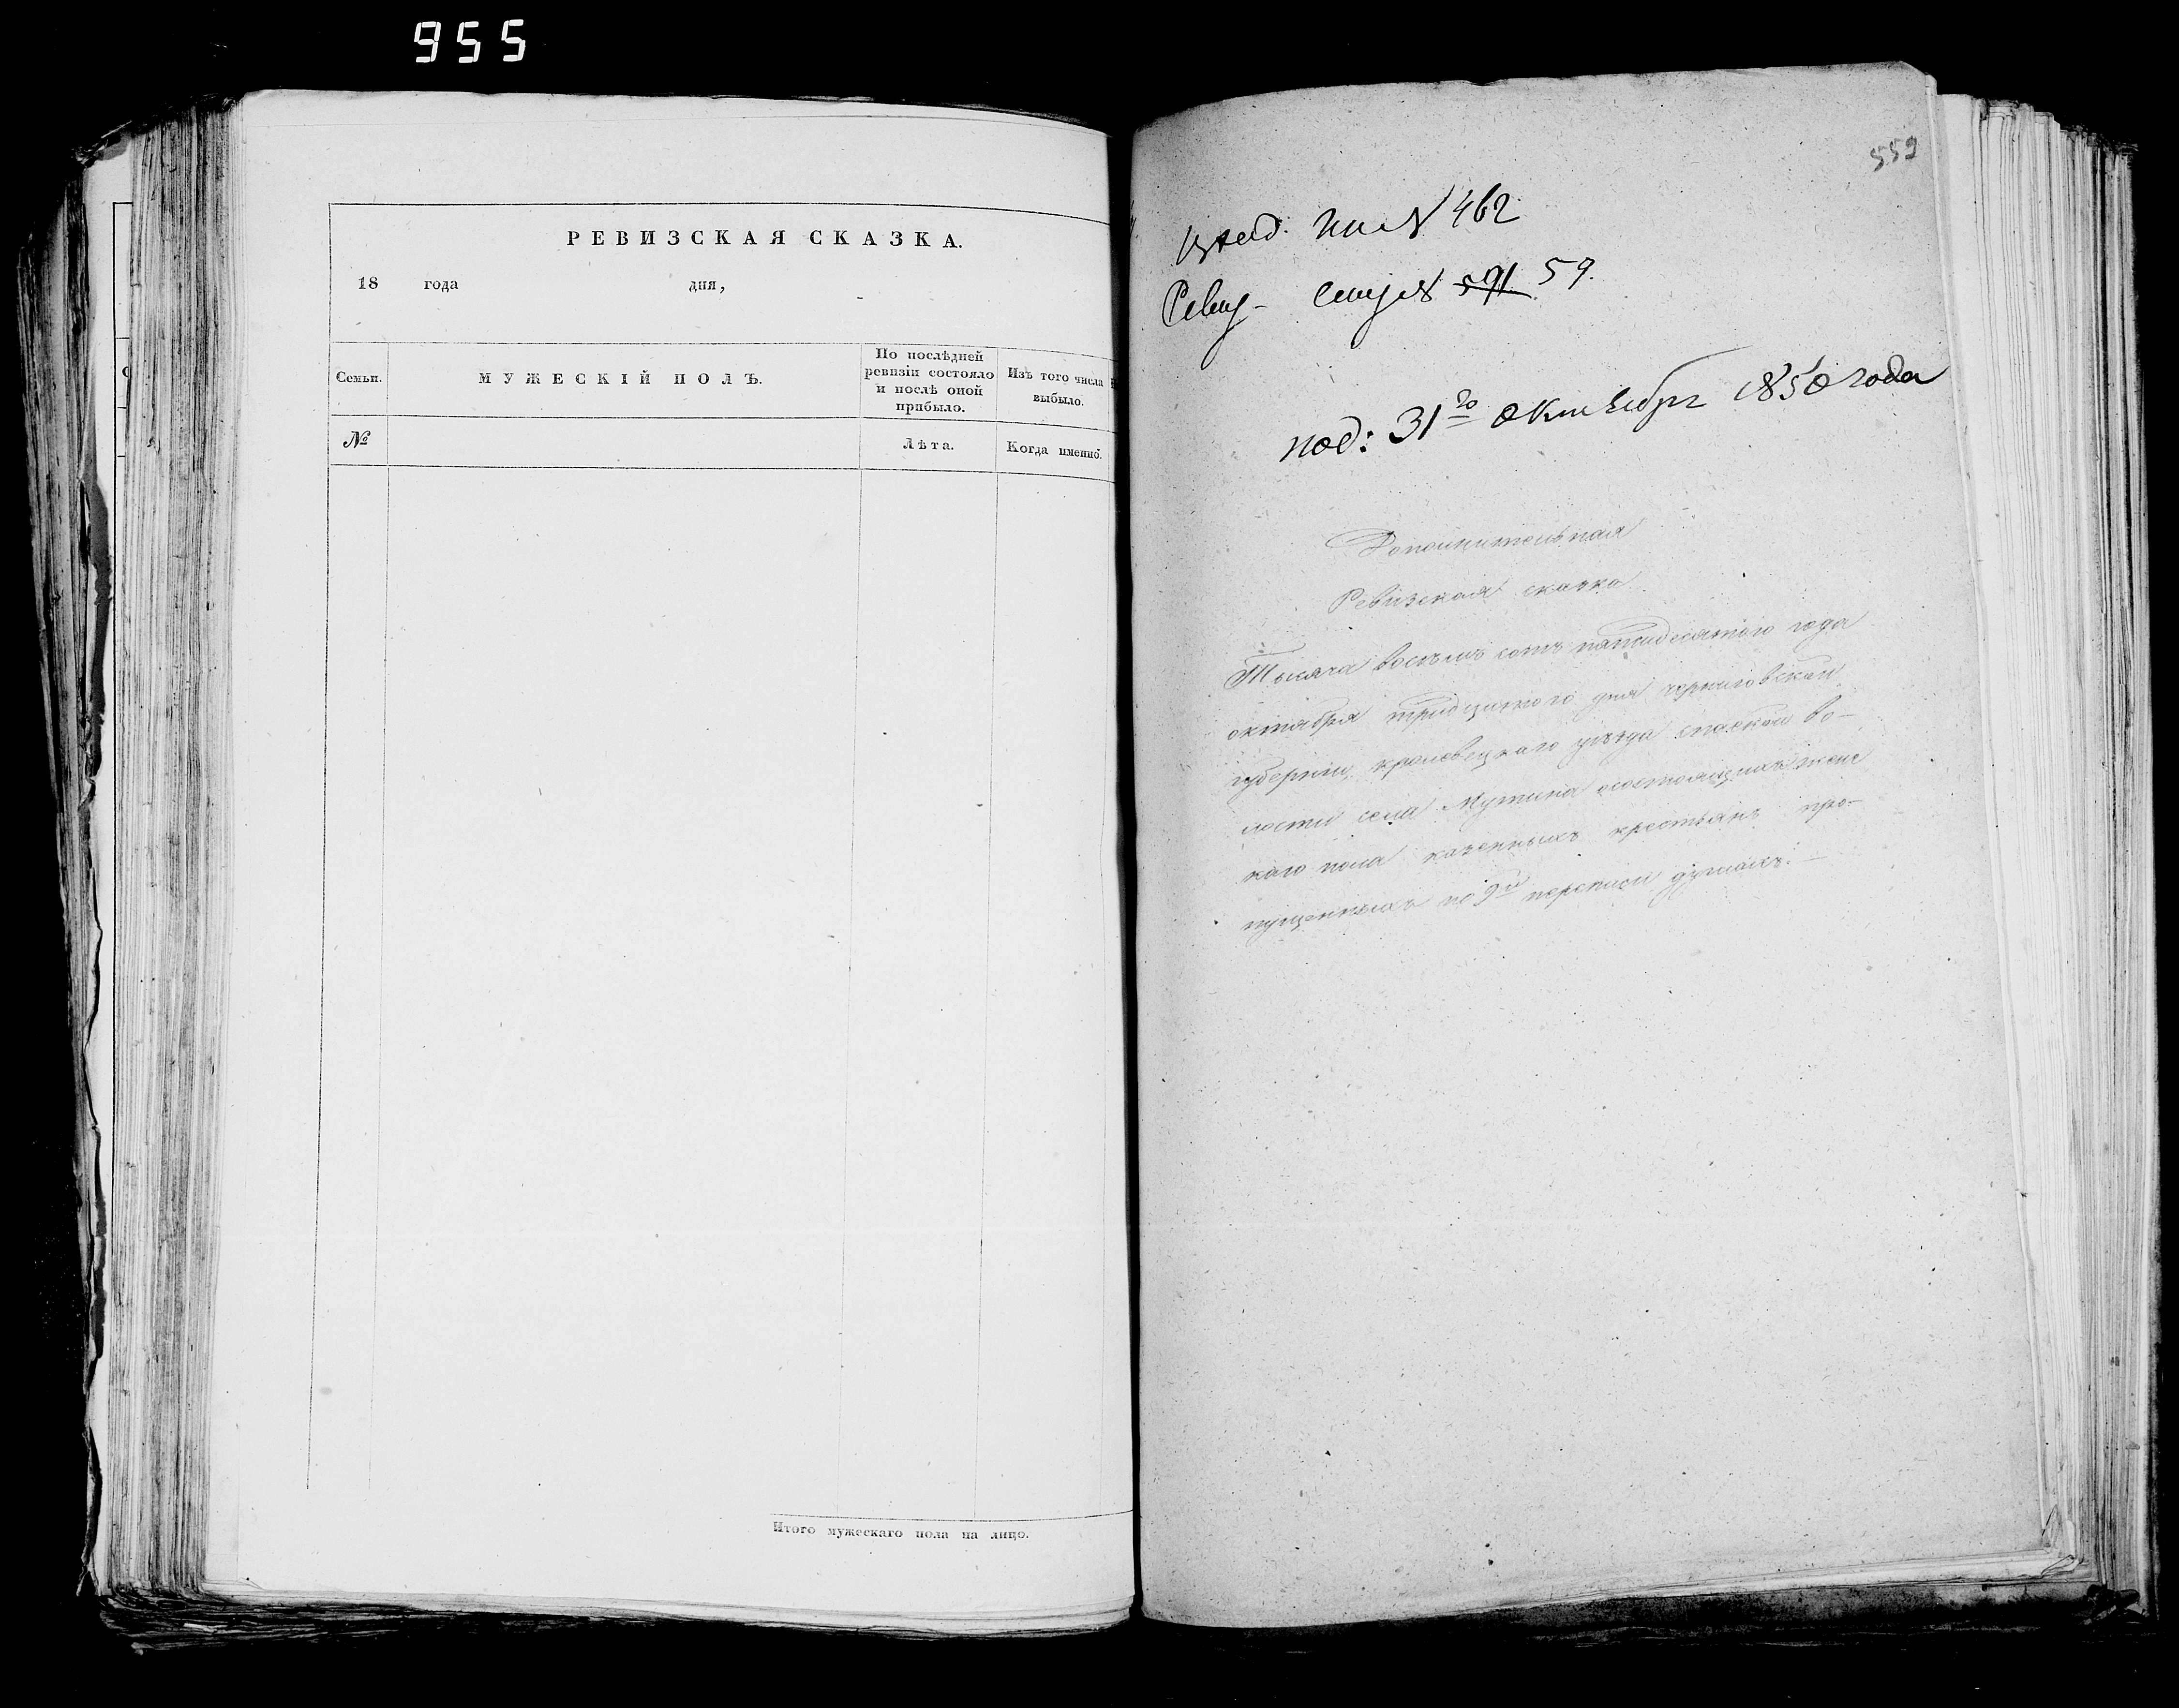 955
РЕВИЗСКАЯ СКАЗКА.
18 года дня,
Семьи.
МУЖЕСКІЙ ПОЛЪ.
По послѣдней
ревизіи состояло
и послѣ оной
прибыло.
Изъ того числа
выбыло.
№
Лѣта.
Когда именно.
Итого мужескаго пола на лицо.
559
№ 462
59.
под: 31го октября 1850 года
Дополнительная
Ревизская сказка
Тысяча восемь сотъ пятидесятого года
октября тридцятого дня черниговской
губерніи, кролевецкаго уѣзда спаской во-
лости села Мутина осостоящихъ женс
каго пола казенныхъ крестьянъ про-
пущенныхъ по 9й переписи душахъ. —